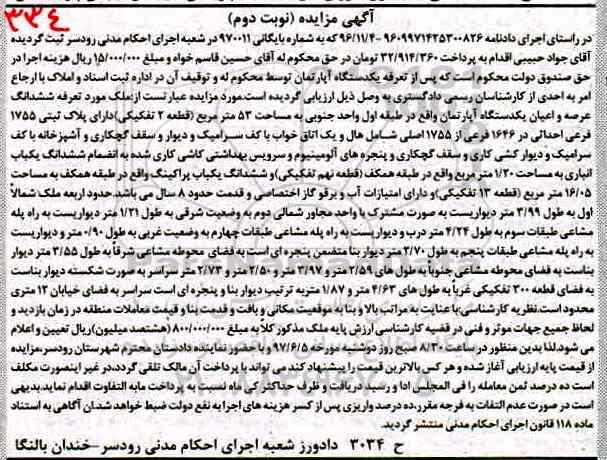 ۳۳۴
آگهی مزایده (نوبت دوم)
در راستای اجرای دادنامه ۹۶۰۹۹۷۱۴۲۵۳۰۰۸۲۶ -۹۶/۱۱/۴ که به شماره بایگانی ۹۷۰۰۱۱ در شعبه اجرای احکام مدنی رودسر ثبت گردیده
آقای جواد حبیبی اقدام به پرداخت ۳۲/۹۱۴/۳۶۰ تومان در حق محکوم له آقای حسین قاسم خواه و مبلغ ۱۵/۰۰۰/۰۰۰ ریال هزینه اجرا در
حق صندوق دولت محکوم است که پس از تعرفه یکدستگاه آپارتمان توسط محکوم له و توقیف آن در اداره ثبت اسناد و املاک با ارجاع
امر به احدی از کارشناسان رسمی دادگستری به وصل ذیل ارزیابی گردیده است.مورد مزایده عبارتست از:ملک مورد تعرفه ششدانگ
عرصه و اعیان یکدستگاه آپارتمان واقع در طبقه اول واحد جنوبی به مساحت ۵۳ متر مربع (قطعه ۲ تفکیکی)دارای پلاک ثبتی ۱۷۵۵
فرعی احداثی در ۱۶۴۶ فرعی از ۱۷۵۵ اصلی شامل هال و یک اتاق خواب با کف سرامیک و دیوار و سقف گچکاری و آشپزخانه با کف
سرامیک و دیوار کشی کاری و سقف گچکاری و پنجره های آلومینیوم و سرویس بهداشتی کاشی کاری شده به انضمام ششدانگ یکباب
انباری به مساحت ۱/۲۰ متر مربع واقع در طبقه همکف (قطعه نهم تفکیکی)و ششدانگ یکباب پراکینگ واقع در طبقه همکف به مساحت
۱۶/۰۵ متر مربع (قطعه ۱۳ تفکیکی)و دارای امتیازات آب و برقو گاز اختصاصی و قدمت حدود ۸ سال می باشد.حدود اربعه ملک شمالاً
اول به طول ۳/۹۹ متر دیواریست به صورت مشترک با واحد مجاور شمالی دوم به وضعیت شرقی به طول ۱/۲۱ متر دیواریست به راه پله
مشاعی طبقات سوم به طول ۴/۲۴ متر درب و دیواریست به راه پله مشاعی طبقات چهارم به وضعیت غربی به طول ۰/۹۰ متر و دیواریست
به راه پله مشاعی طبقات پنجم به طول ۲/۷۰ متر دیوار بنا متضمن پنجره ای است به فضای محوطه مشاعی شرقاً به طول ۳/۵۵ متر دیوار
بناست به فضای محوطه مشاعی جنوباً به طول های ۲/۵۹ متر و ۳/۹۷ متر و ۲/۵۰ متر و ۲/۷۳ متر سراسر به صورت شکسته دیوار بناست
به فضای قطعه ۳۰۰ تفکیکی غرباً به طول های ۴/۶۳ متر و ۱/۸۷ متربه ترتیب دیوار بنا و پنجره ای است سراسر به فضای خیابان ۱۲ متری
محدود است.نظریه کارشناسی:با عنایت به مراتب بالا و بنا به موقعیت مکانی و بافت و قدمت بنا و قیمت معاملات منطقه در زمان بازدید و
لحاظ جمیع جهات موثر و فنی در قضیه کارشناسی ارزش پایه ملک مذکور کلاً به مبلغ ۸۰۰/۰۰۰/۰۰۰ (هشتصد میلیون)ریال تعیین و اعلام
می شود.لذا بدین منظور در ساعت ۸/۳۰ صبح روز دوشنبه مورخه ۹۷/۶/۵ با حضور نماینده دادستان محترم شهرستان رودسر،مزایده
از قیمت پایه ارزیابی آغاز شده و هر کس بالاترین قیمت را پیشنهاد کند می تواند با پرداخت آن مالک تلقی گردد،در غیر اینصورت مکلف
است ده درصد ثمن معامله را فی المجلس ادا و رسید دریافت و ظرف حداکثر یکی ماه نسبت به پرداخت مابه التفاوت اقدام نماید.بدیهی
است در صورت عدم التفات به فرجه مقرر،ده درصد واریزی پس از کسر هزینه های اجرا به نفع دولت ضبط خواهد شد.ان آگاهی به استناد
ماده ۱۱۸ قانون اجرای احکام مدنی منتشر گردید.
ح ۳۰۳۴ دادورز شعبه اجرای احکام مدنی رودسر-خندان بالنگا